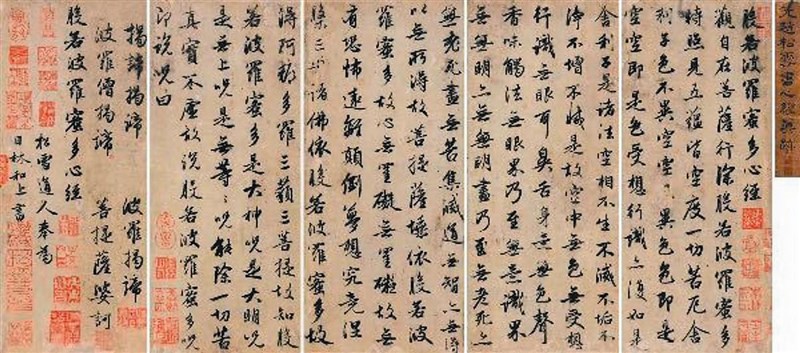 元趙松雪書心經
般若波羅蜜多心經
觀自在菩薩行深般若波羅蜜多
時照見五蘊皆空度一切苦厄舍
利子色不異空空不異色色即是
空空即是色受想行識亦復如是
舍利子是諸法空相不生不滅不垢不
淨不增不減是故空中無色無受想
行識無眼耳鼻舌身意無色聲
香味觸法無眼界乃至無意識界
無無明亦無無明盡乃至無老死亦
無老死盡無苦集滅道無智亦無得
以無所得故菩提薩埵依般若波
羅蜜多故心無罣礙無罣礙故無
有恐怖遠離顛倒夢想究竟涅
槃三世諸佛依般若波羅蜜多故
得阿耨多羅三藐三菩提故知般
若波羅蜜多是大神咒是大明咒
是無上咒是無等等咒能除一切苦
真實不虛故說般若波羅蜜多咒
即說咒曰
揭諦揭諦 波羅揭諦
波羅僧揭諦 菩提薩婆訶
般若波羅蜜多心經
松雪道人奉為
日林和上書